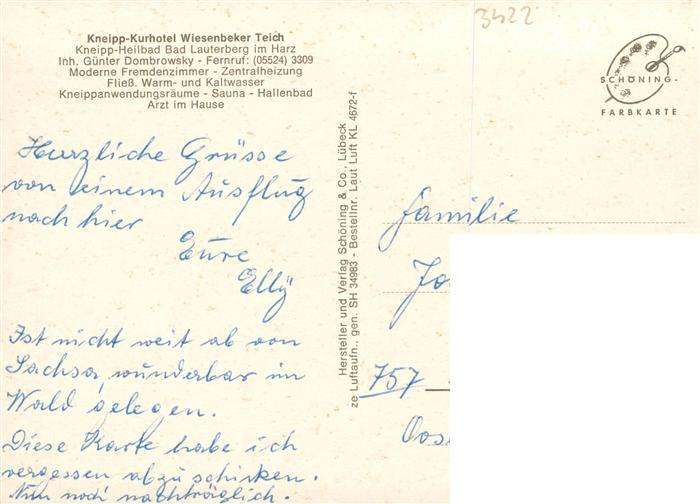 3422
Kneipp-Kurhotel Wiesenbeker Teich
Kneipp-Heilbad Bad Lauterberg im Harz
Inh. Günter Dombrowsky - Fernruf: (05524) 3309
Moderne Fremdenzimmer - Zentralheizung
Fließ. Warm- und Kaltwasser
Kneippanwendungsräume - Sauna - Hallenbad
Arzt im Hause
SCHÖNING-
FARBKARTE
Herzliche Grüsse
von einem Ausflug
nach hier
Eure
Elly
Ist nicht weit ab von
Sachsa, wunderbar im
Wald gelegen.
Diese Karte habe ich
vergessen abzuschicken.
Nun noch nachträglich.
Hersteller und Verlag Schöning & Co., Lübeck
ze Luftaufn., gen. SH 34983 - Bestellnr. Laut Luft KL 4672-f
Familie
Jo
757
Oos